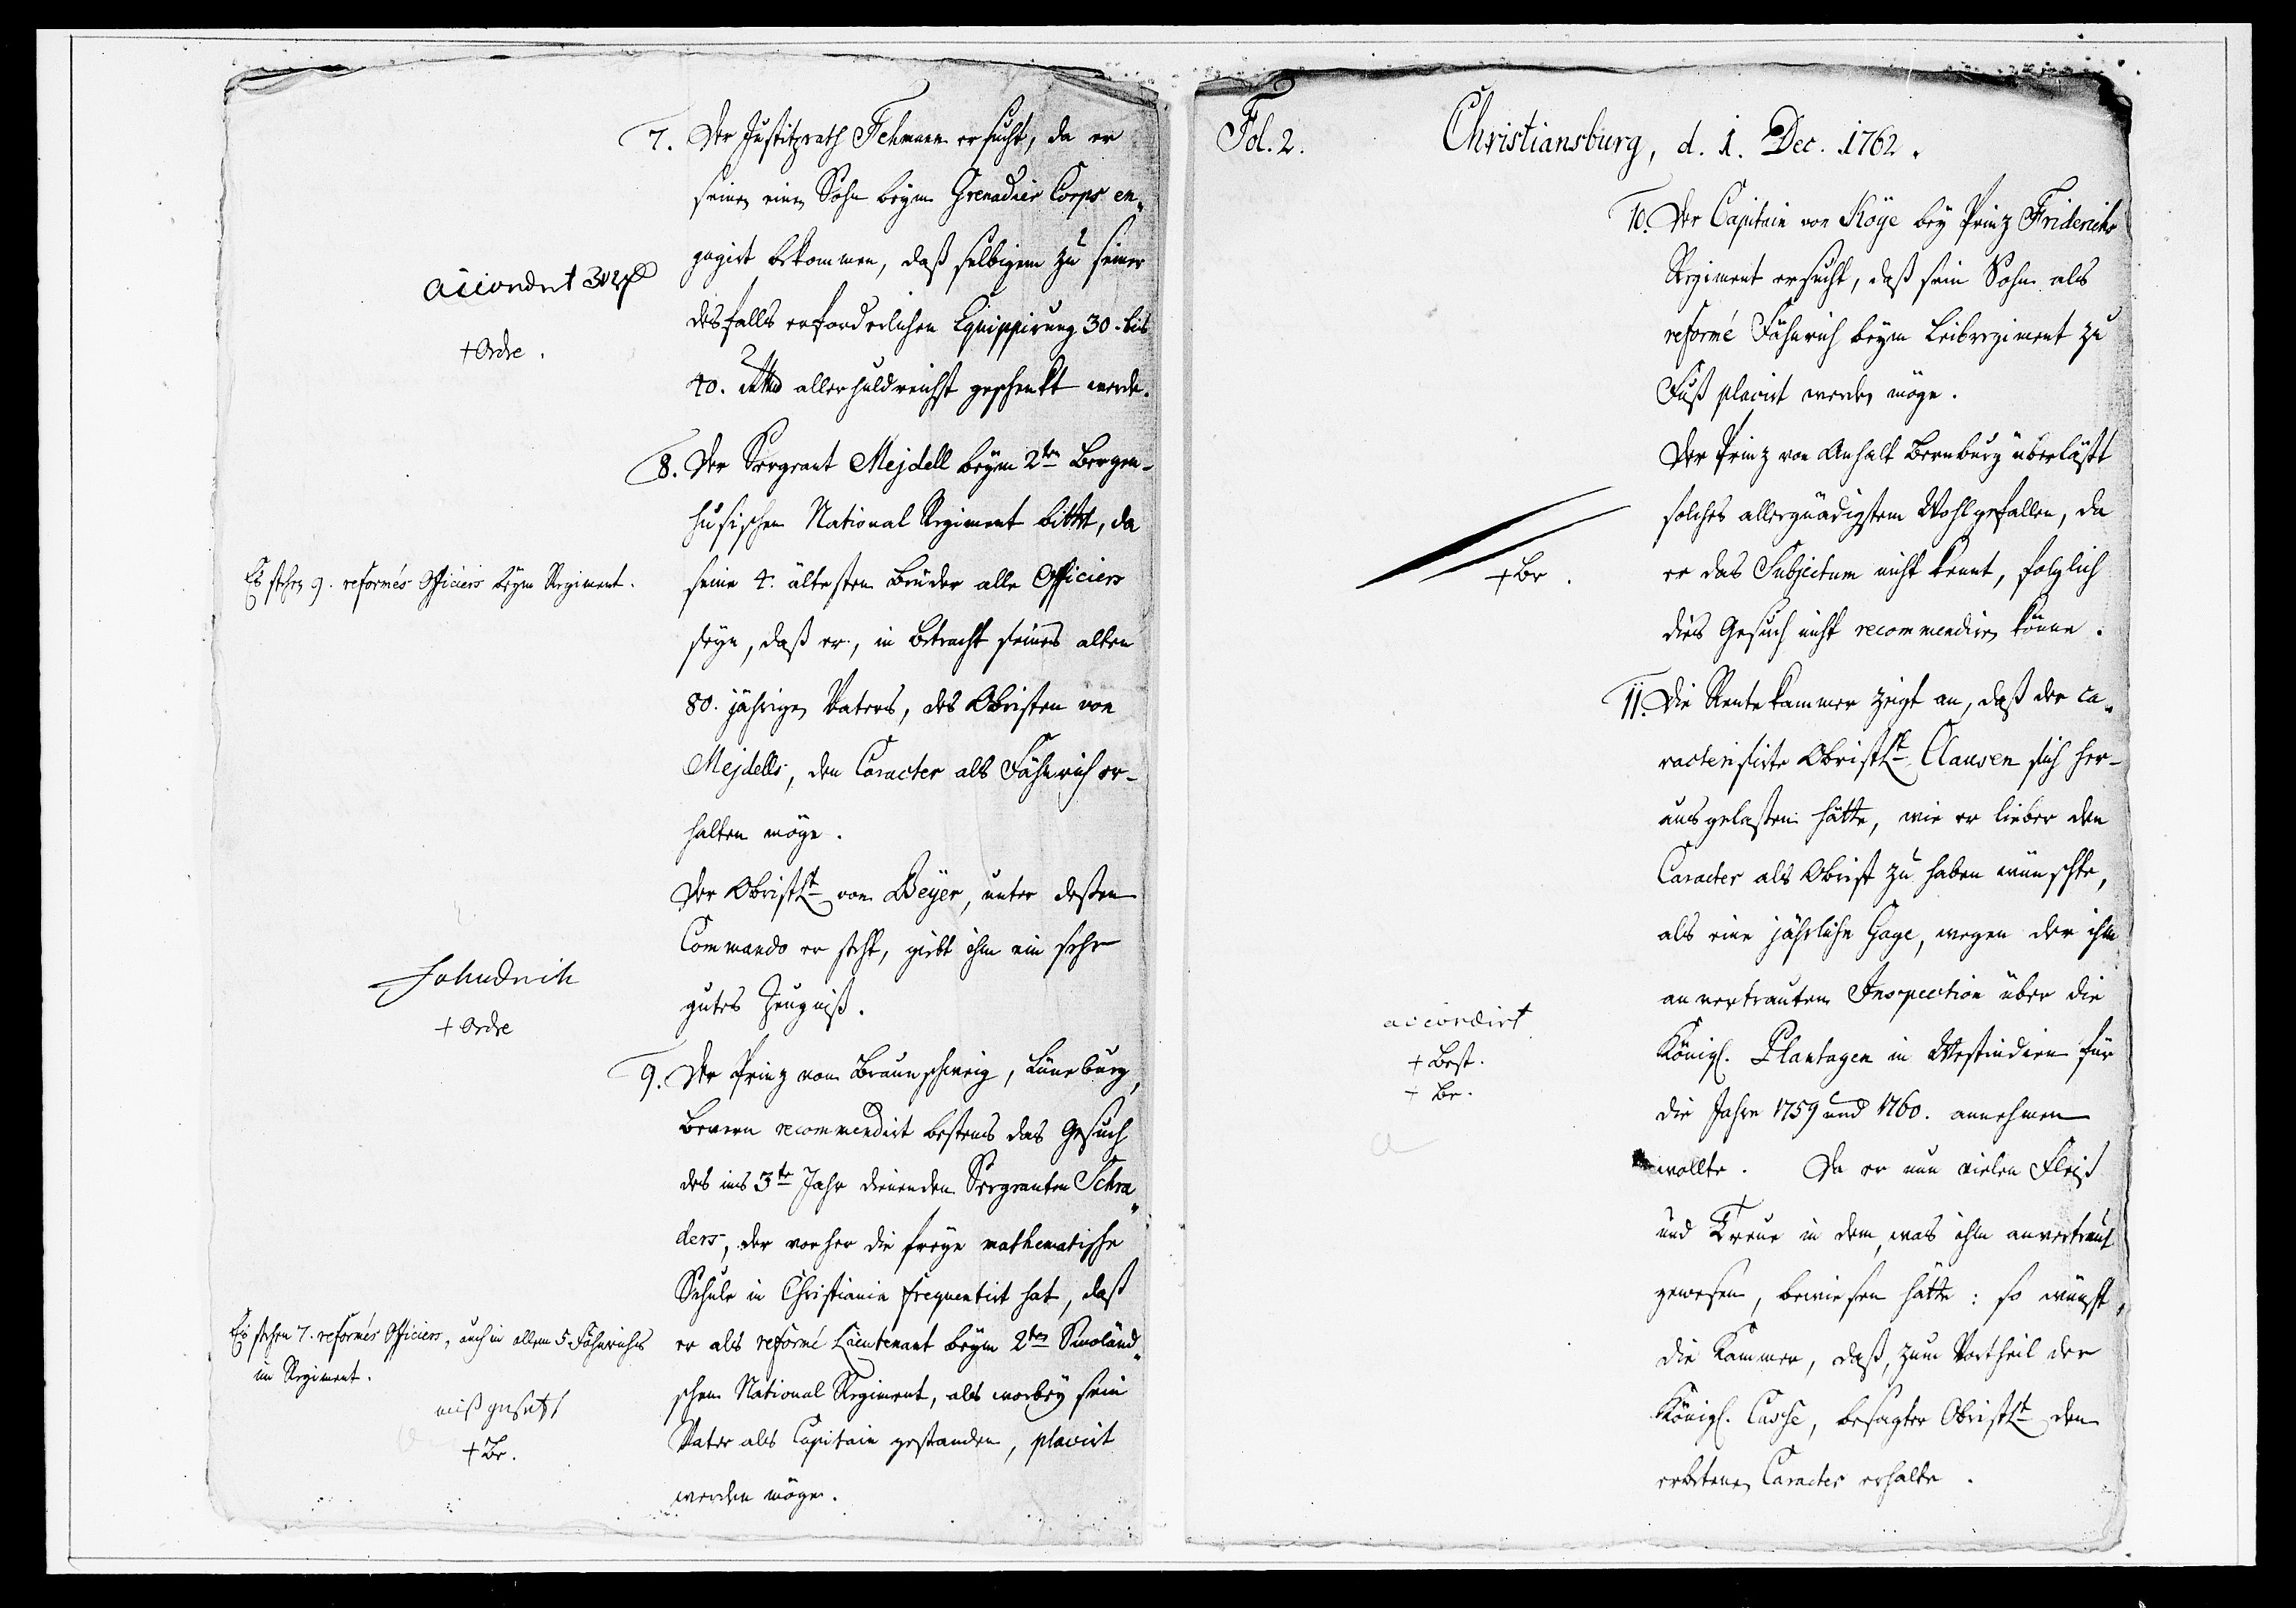 7. Der Justitzrath Fehmann ersucht, da er
seinen einen Sohn beym Grenadier Corps en„
gagirt bekommen, daß selbigem zu seiner
desfalls erforderlichen Equippirung 30. bis
40. Rthlr allerhuldreichst geschenkt werde.
accordirt 30 Rthlr
+ Ordre.
8. Der Sergeant Mejdell beym 2ten Bergen-
husischen National Regiment bittet, da
seine 4. ältesten Brüder alle Officiers
seyn, daß er, in Betracht seines alten
80. jährigen Vaters, des Obristen von
Mejdells, den Caracter als Fähnrich er-
halten möge.
Es stehen 9. reformés Officiers beym Regiment.
Der ObristLt von Beyer, unter deßen
Commando er steht, giebt ihm ein sehr
gutes Zeugniß.
+ Ordre
9. Der Prinz von Braunschweig, Lüneburg,
Bevern recommendirt bestens das Gesuch
des ins 3te Jahr dienenden Sergeanten Schra„
ders, der vorher die freye mathematische
Schule in Christiania frequentirt hat, daß
er als reformé Lieutenant beym 2ten Smoländ„
schen National Regiment, als worbey sein
Vater als Capitain gestanden, placirt
werden möge.
Es stehen 7. reformés Officiers, auch in allem 5 Fähnrichs
im Regiment.
+ Br.
Fol. 2.
Christiansburg, d. 1. Dec. 1762.
10. Der Capitain von Köye bey Prinz Friderichs
Regiment ersucht, daß sein Sohn als
reformé Fähnrich beym Leibregiment zu
Fuß placirt werden möge.
Der Prinz von Anhalt Bernburg überläßt
solches allergnädigstem Wohlgefallen, da
er das Subjectum nicht kennt, folglich
dies Gesuch nicht recommendiren könne.
+ Br.
11. Die Rentekammer zeigt an, daß der ca„
racterisirte ObristLt Clausen sich her-
ausgelaßen hätte, wie er lieber den
Caracter als Obrist zu haben wünschte,
als eine jährliche Gage, wegen der ihm
anvertrauten Inspection über die
Königl. Plantagen in Westindien für
die Jahre 1759 und 1760. annehmen
wollte. Da er nun vielen Fleiß
und Treue in dem, was ihm anvertraut
gewesen, bewiesen hätte: so wünscht,
die Kammer, daß, zum Vortheil der
Königl. Casse, besagter ObristLt den
erbetenen Caracter erhalte.
accordirt
+ Best.
+ Br.